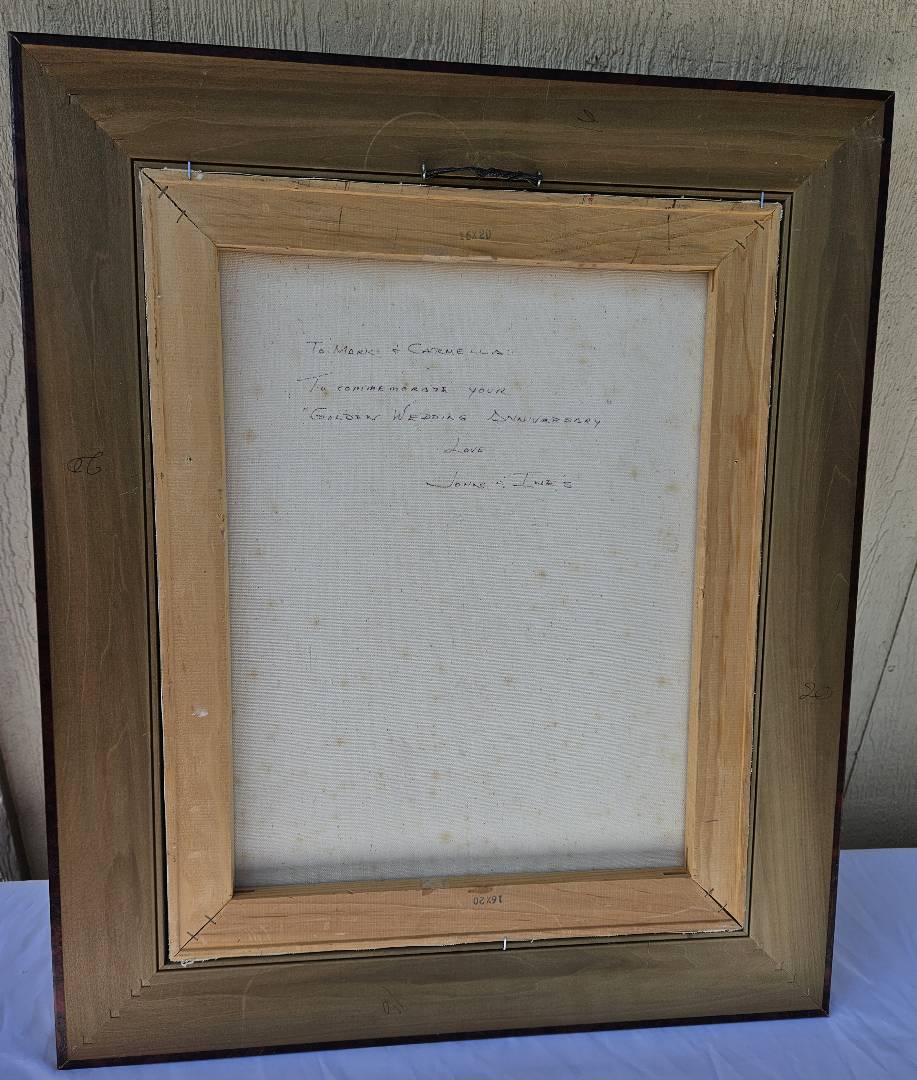 16X20
To Mark & Carmella:
To commemorate your
"Golden Wedding Anniversary"
Love
& Inez
20
16X20